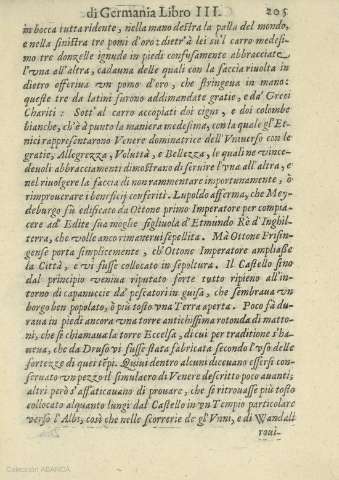 di Germania Libro III. 205
in bocca tutta ridente, nella mano destra la palla del mondo,
e nella sinistra tre pomi d'oro: dietr'à lei sù'l carro medesi-
mo tre donzelle ignude in piedi confusamente abbracciate
l'vna all'altra, cadauna delle quali con la faccia riuolta in
dietro offeriua vn pomo d'oro, che stringeua in mano:
queste tre da latini furono addimandate gratie, e da' Greci
Chariti: Sott'al carro accopiati doi cigni, e doi colombe
bianche, ch'è à punto la maniera medesima, con la quale gl'Et-
nici rappresentarono Venere dominatrice dell'Vniuerso con le
gratie, Allegrezza, Voluttà, e Bellezza, le quali ne vince-
deuoli abbracciamenti dimostrano di seruire l'vna all'altra, e
nel riuolgere la faccia di non rammentare importunamente, ò
rimprouerare i beneficij conferiti. Lupoldo afferma, che Mey-
deburgo fù edificato da Ottone primo Imperatore per compia-
cere ad Edite sua moglie figliuola d'Etmundo Rè d'Inghil-
terra, che volle anco rimanerui sepellita. Mà Ottone Frisin-
gense porta simplicemente, ch'Ottone Imperatore ampliasse
la Città, e vi fusse collocato in sepoltura. Il Castello sino
dal principio veniua riputato forte tutto ripieno all'in-
torno di capanuccie da' pescatori in guisa, che sembraua vn
borgo ben popolato, ò più tosto vna Terra aperta. Poco fà du-
raua in piedi ancora vna torre antichissima rotonda di matto-
ni, che si chiamaua la torre Eccelsa, di cui per traditione s'ha-
ueua, che da Druso vi fusse stata fabricata secondo l'vso delle
fortezze di quei tẽpi. Quiui dentro alcuni diceuano essersi con-
seruato vn pezzo il simulacro di Venere descritto poco auanti;
altri però s'affaticauano di prouare, che se ritrouasse più tosto
collocato alquanto lungi dal Castello in vn Tempio particolare
verso l'Albi, così che nelle scorrerie de gl'Vnni, e di Wandali
roui-
Colección ABANCA